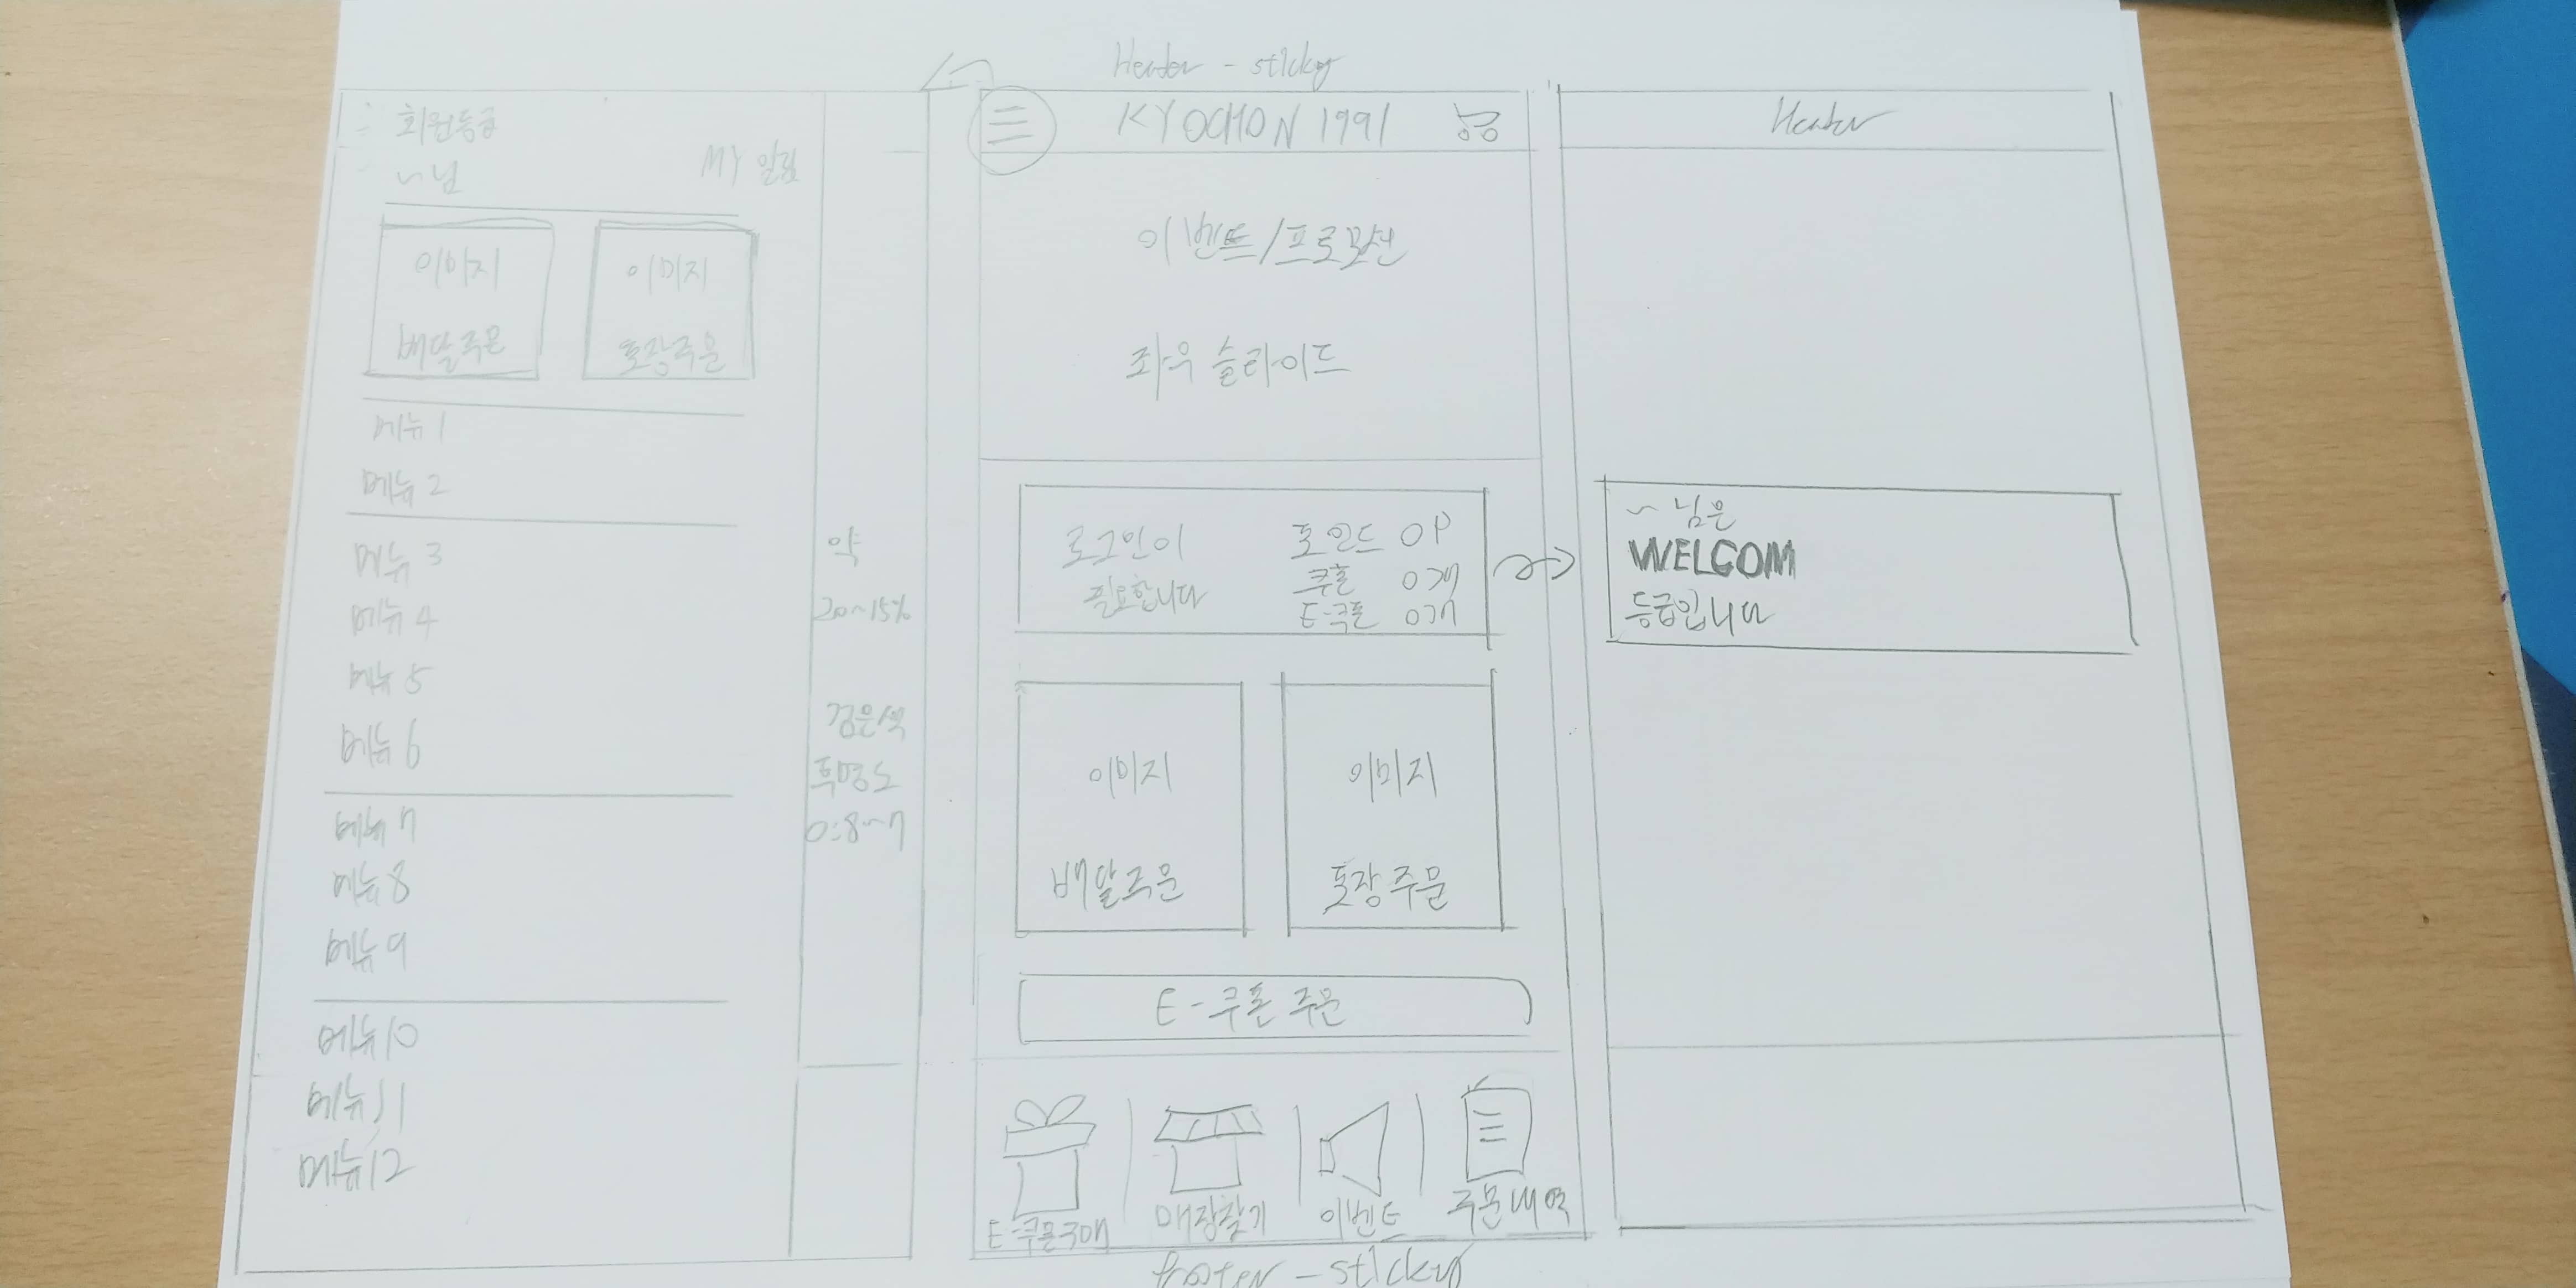 Header - sticky
회원등급
~님
MY 알림
이미지
배달주문
이미지
포장주문
메뉴 1
메뉴 2
메뉴 3
메뉴 4
메뉴 5
메뉴 6
메뉴 7
메뉴 8
메뉴 9
메뉴 10
메뉴 11
메뉴 12
약
20~15%
검은색
투명도
0.8~7
KYOCHON 1991
이벤트/프로모션
좌우 슬라이드
로그인이
필요합니다
포인트 0P
쿠폰 0개
E-쿠폰 0개
이미지
배달주문
이미지
포장주문
E-쿠폰 주문
E-쿠폰구매
매장찾기
이벤트
주문내역
footer - sticky
Header
~님은
WELCOM
등급입니다